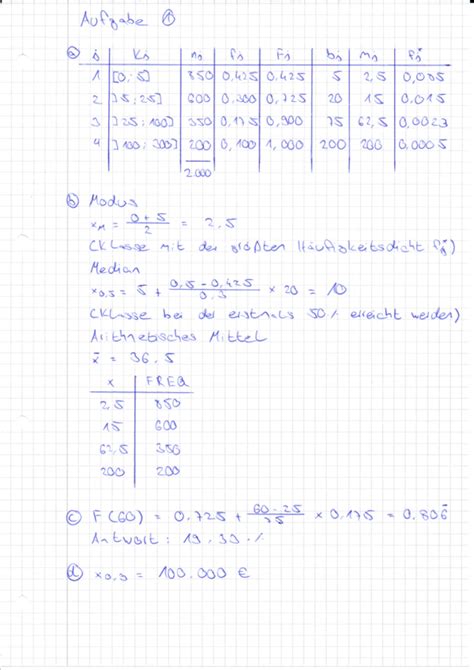 Aufgabe ①
a) j | Kj | nj | fj | Fj | bj | mj | fj*
1 | [0; 5] | 850 | 0,425 | 0,425 | 5 | 2,5 | 0,085
2 | ]5; 25] | 600 | 0.300 | 0,725 | 20 | 15 | 0.015
3 | ]25; 100] | 350 | 0,175 | 0,900 | 75 | 62,5 | 0,0023
4 | ]100; 300] | 200 | 0,100 | 1,000 | 200 | 200 | 0,0005
2.000
b) Modus
xM = (0+5)/2 = 2,5
(Klasse mit der größten Häufigkeitsdicht fj*)
Median
x0,5 = 5 + (0,5 - 0,425)/0.3 × 20 = 10
(Klasse bei der erstmals 50% erreicht werden)
Arithmetisches Mittel
x̄ = 36,5
x | FREQ
2,5 | 850
15 | 600
62,5 | 350
200 | 200
c) F(60) = 0.725 + (60-25)/75 × 0.175 = 0.806̄
Antwort: 19.33 %
d) x0,9 = 100.000 €